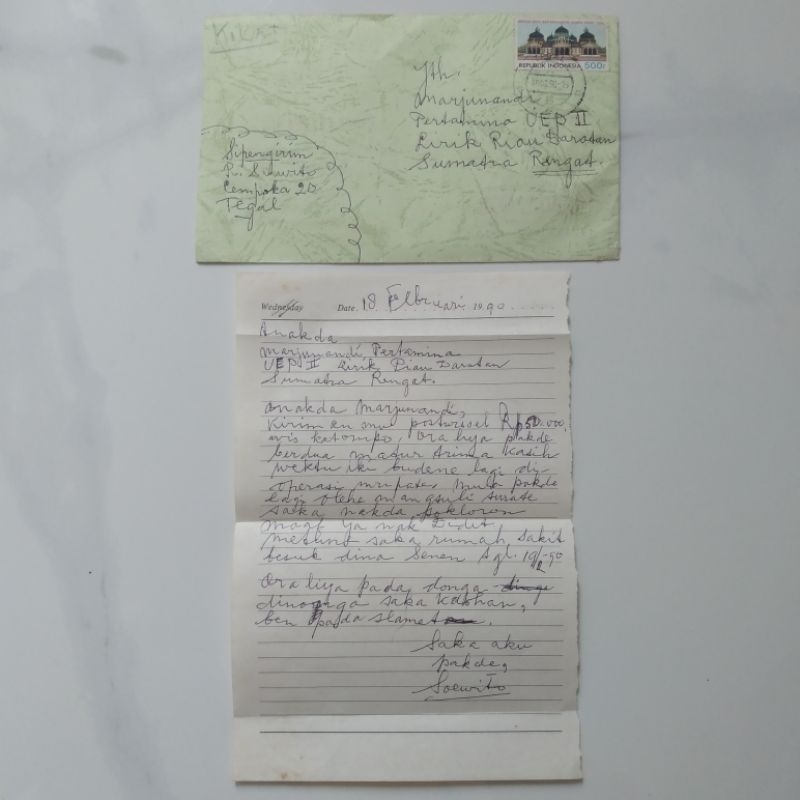 Yth.
Marjunandi
Pertamina UEP II
Lirik Riau Daratan
Sumatra Rengat.
REPUBLIK INDONESIA 500r
Sipengirim
Cempaka 20
Tegal
Wednesday Date. 18 Februari 19.90
Anakda
Marjunandi, Pertamina
UEP II Lirik Riau Daratan
Sumatra Rengat.
Anakda Marjunandi,
Kiriman mu poswissel Rp 50.000,
wis katompo, ora liya pakde
berdua matur trima kasih
wektu iku budene lagi di
operasi mripate, mula pakde
lagi
saka nakda
maaf ya nak Didit
metune saka rumah sakit
besuk dina Senen tgl. 19/2-90
Ora liya pada donga
dinonga saka Kdohan,
ben pada slamet.
Saka aku
pakde,
Soewito